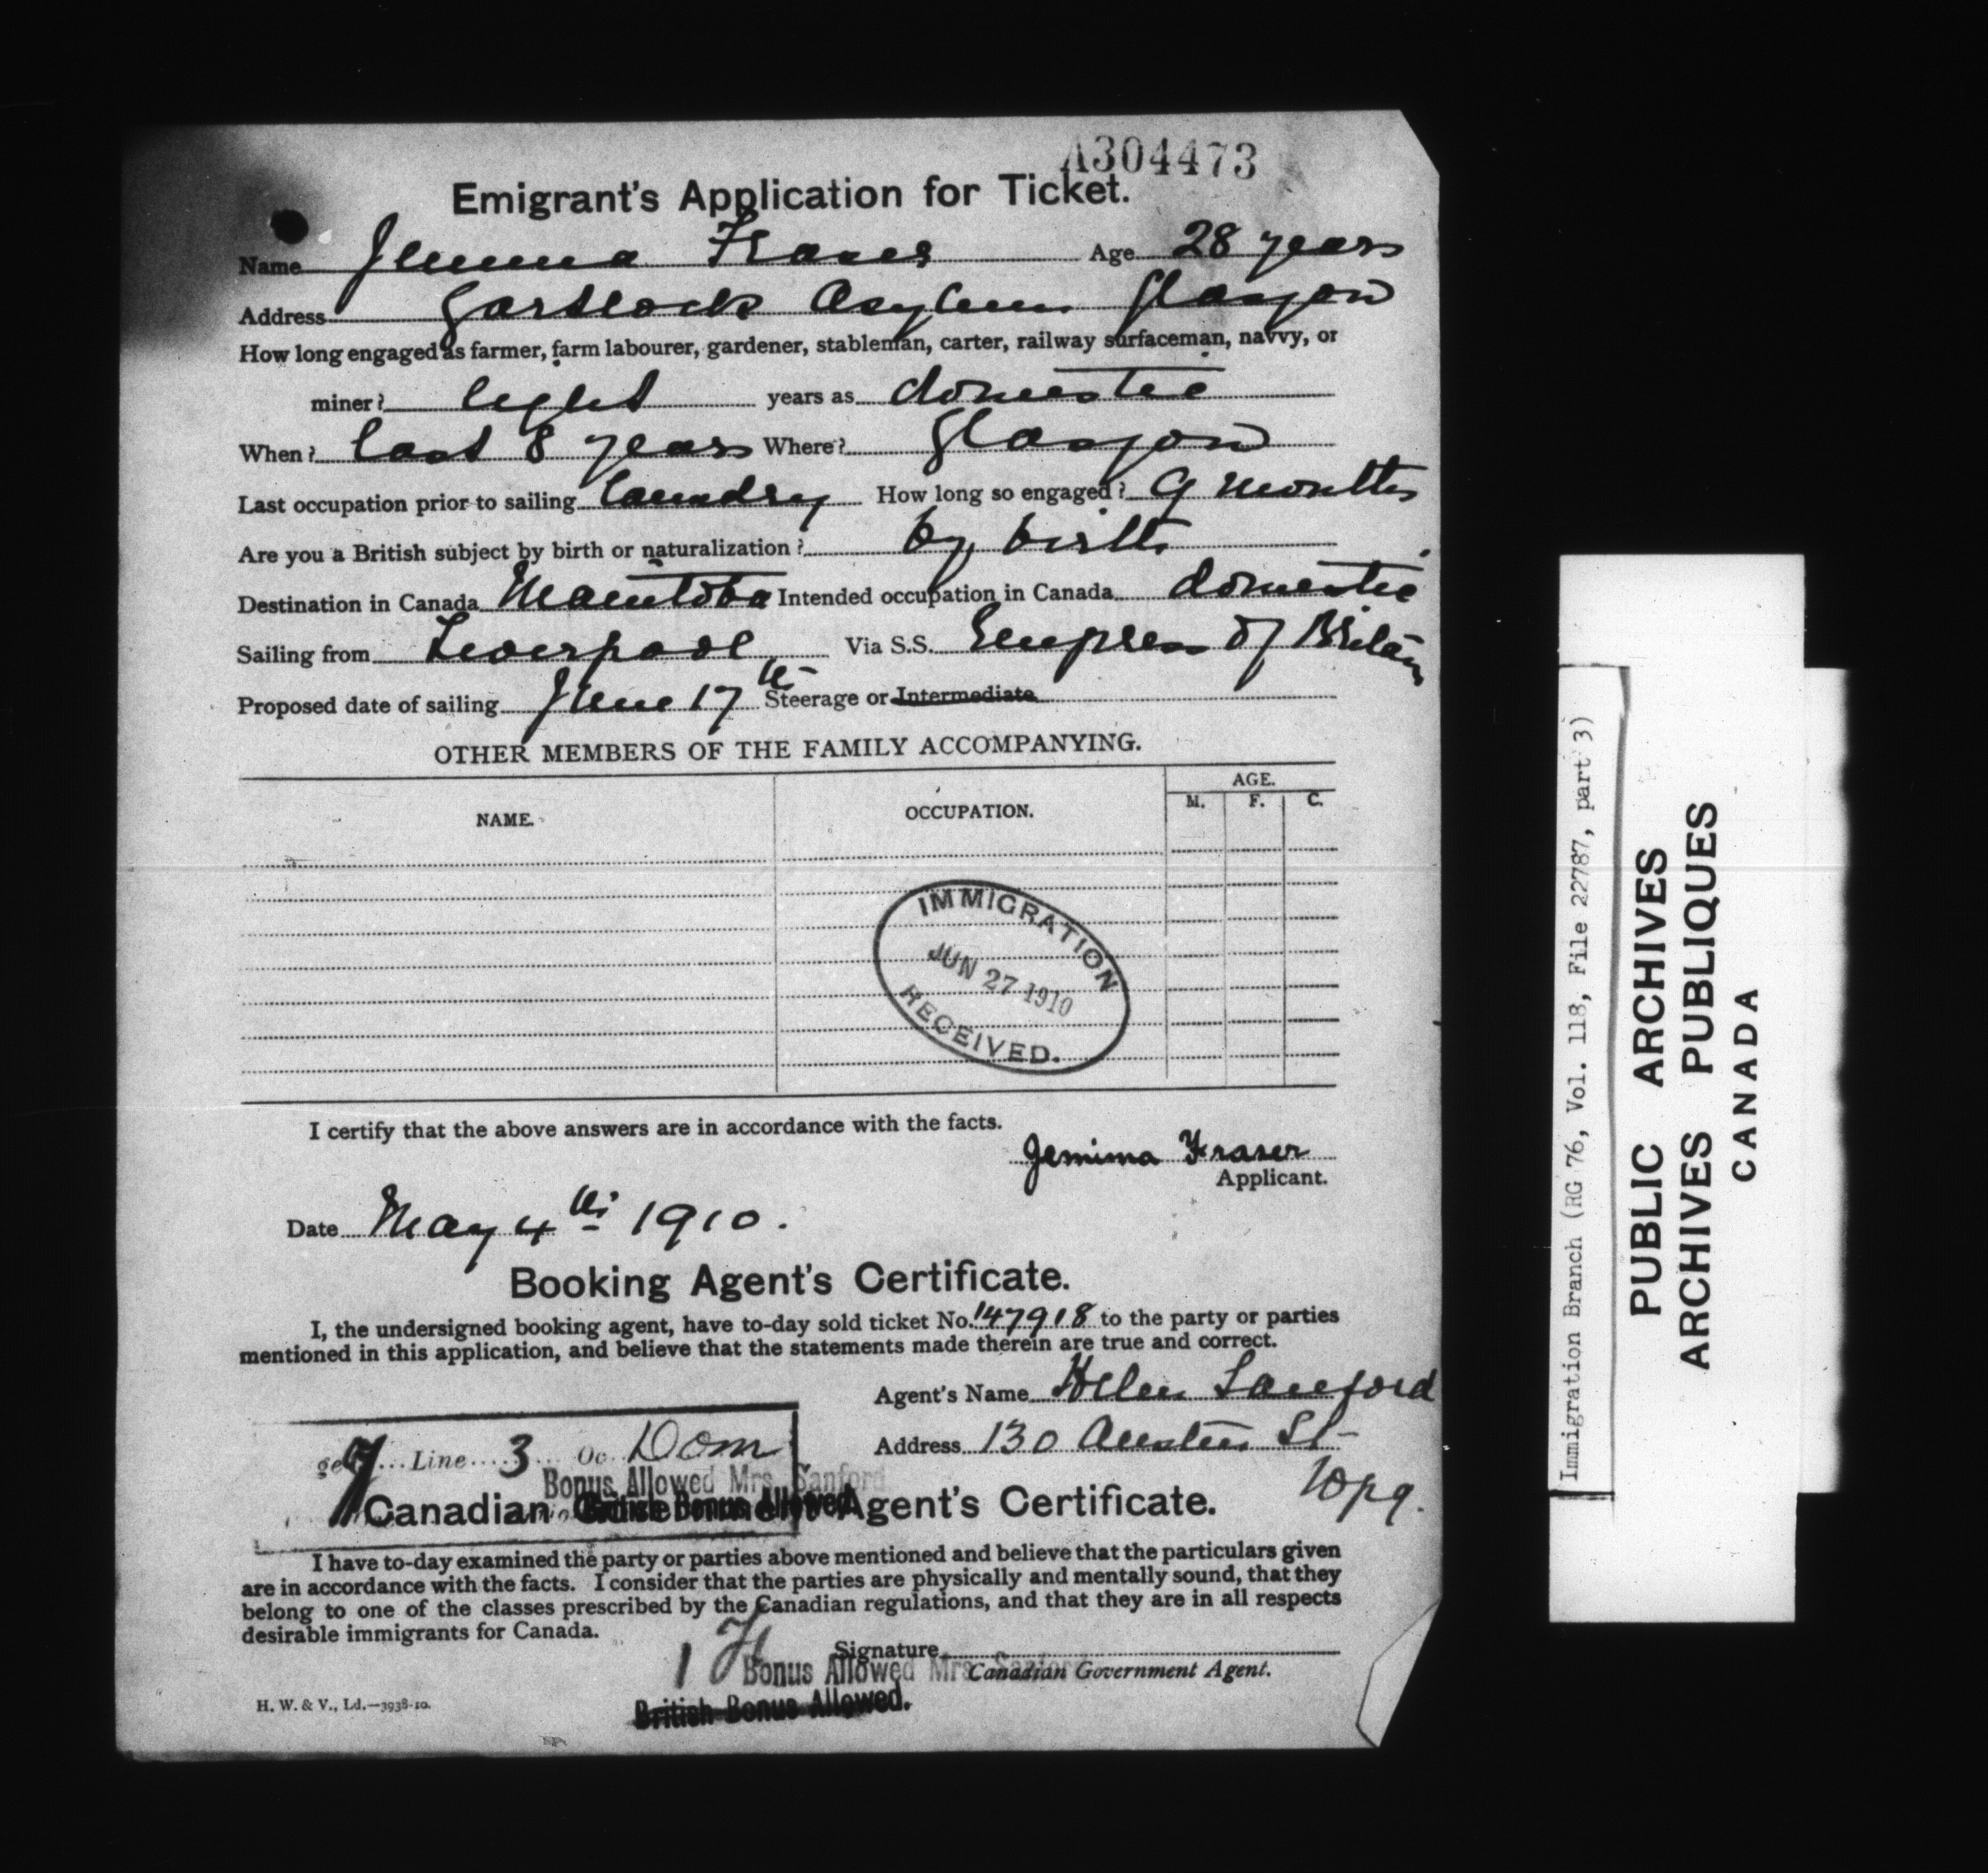 A304473
Emigrant's Application for Ticket.
Name Jemima Fraser Age 28 years
Address Gartlock Asylum Glasgow
How long engaged as farmer, farm labourer, gardener, stableman, carter, railway surfaceman, navvy, or
miner? eight years as domestic
When? last 8 years Where? Glasgow
Last occupation prior to sailing laundry How long so engaged? 9 months
Are you a British subject by birth or naturalization? by birth
Destination in Canada Manitoba Intended occupation in Canada domestic
Sailing from Liverpool Via S.S. Empress of Britain
Proposed date of sailing June 17th Steerage or Intermediate
OTHER MEMBERS OF THE FAMILY ACCOMPANYING.
NAME. OCCUPATION. AGE.
M. F. C.
IMMIGRATION
JUN 27 1910
RECEIVED.
I certify that the above answers are in accordance with the facts.
Jemima Fraser
Applicant.
Date May 4th 1910.
Booking Agent's Certificate.
I, the undersigned booking agent, have to-day sold ticket No. 147918 to the party or parties
mentioned in this application, and believe that the statements made therein are true and correct.
Agent's Name Helen Sanford
Address 130 Austin St
Wpg.
ge 7 Line 3 Oc Dom
Bonus Allowed Mrs. Sanford
British Bonus Allowed
Canadian Government Agent's Certificate.
I have to-day examined the party or parties above mentioned and believe that the particulars given
are in accordance with the facts. I consider that the parties are physically and mentally sound, that they
belong to one of the classes prescribed by the Canadian regulations, and that they are in all respects
desirable immigrants for Canada.
Signature
1 F
Bonus Allowed Mrs. Sanford
Canadian Government Agent.
British Bonus Allowed.
H. W. & V., Ld.—3938-10.
Immigration Branch (RG 76, Vol. 118, File 22787, part 3)
PUBLIC ARCHIVES
ARCHIVES PUBLIQUES
CANADA